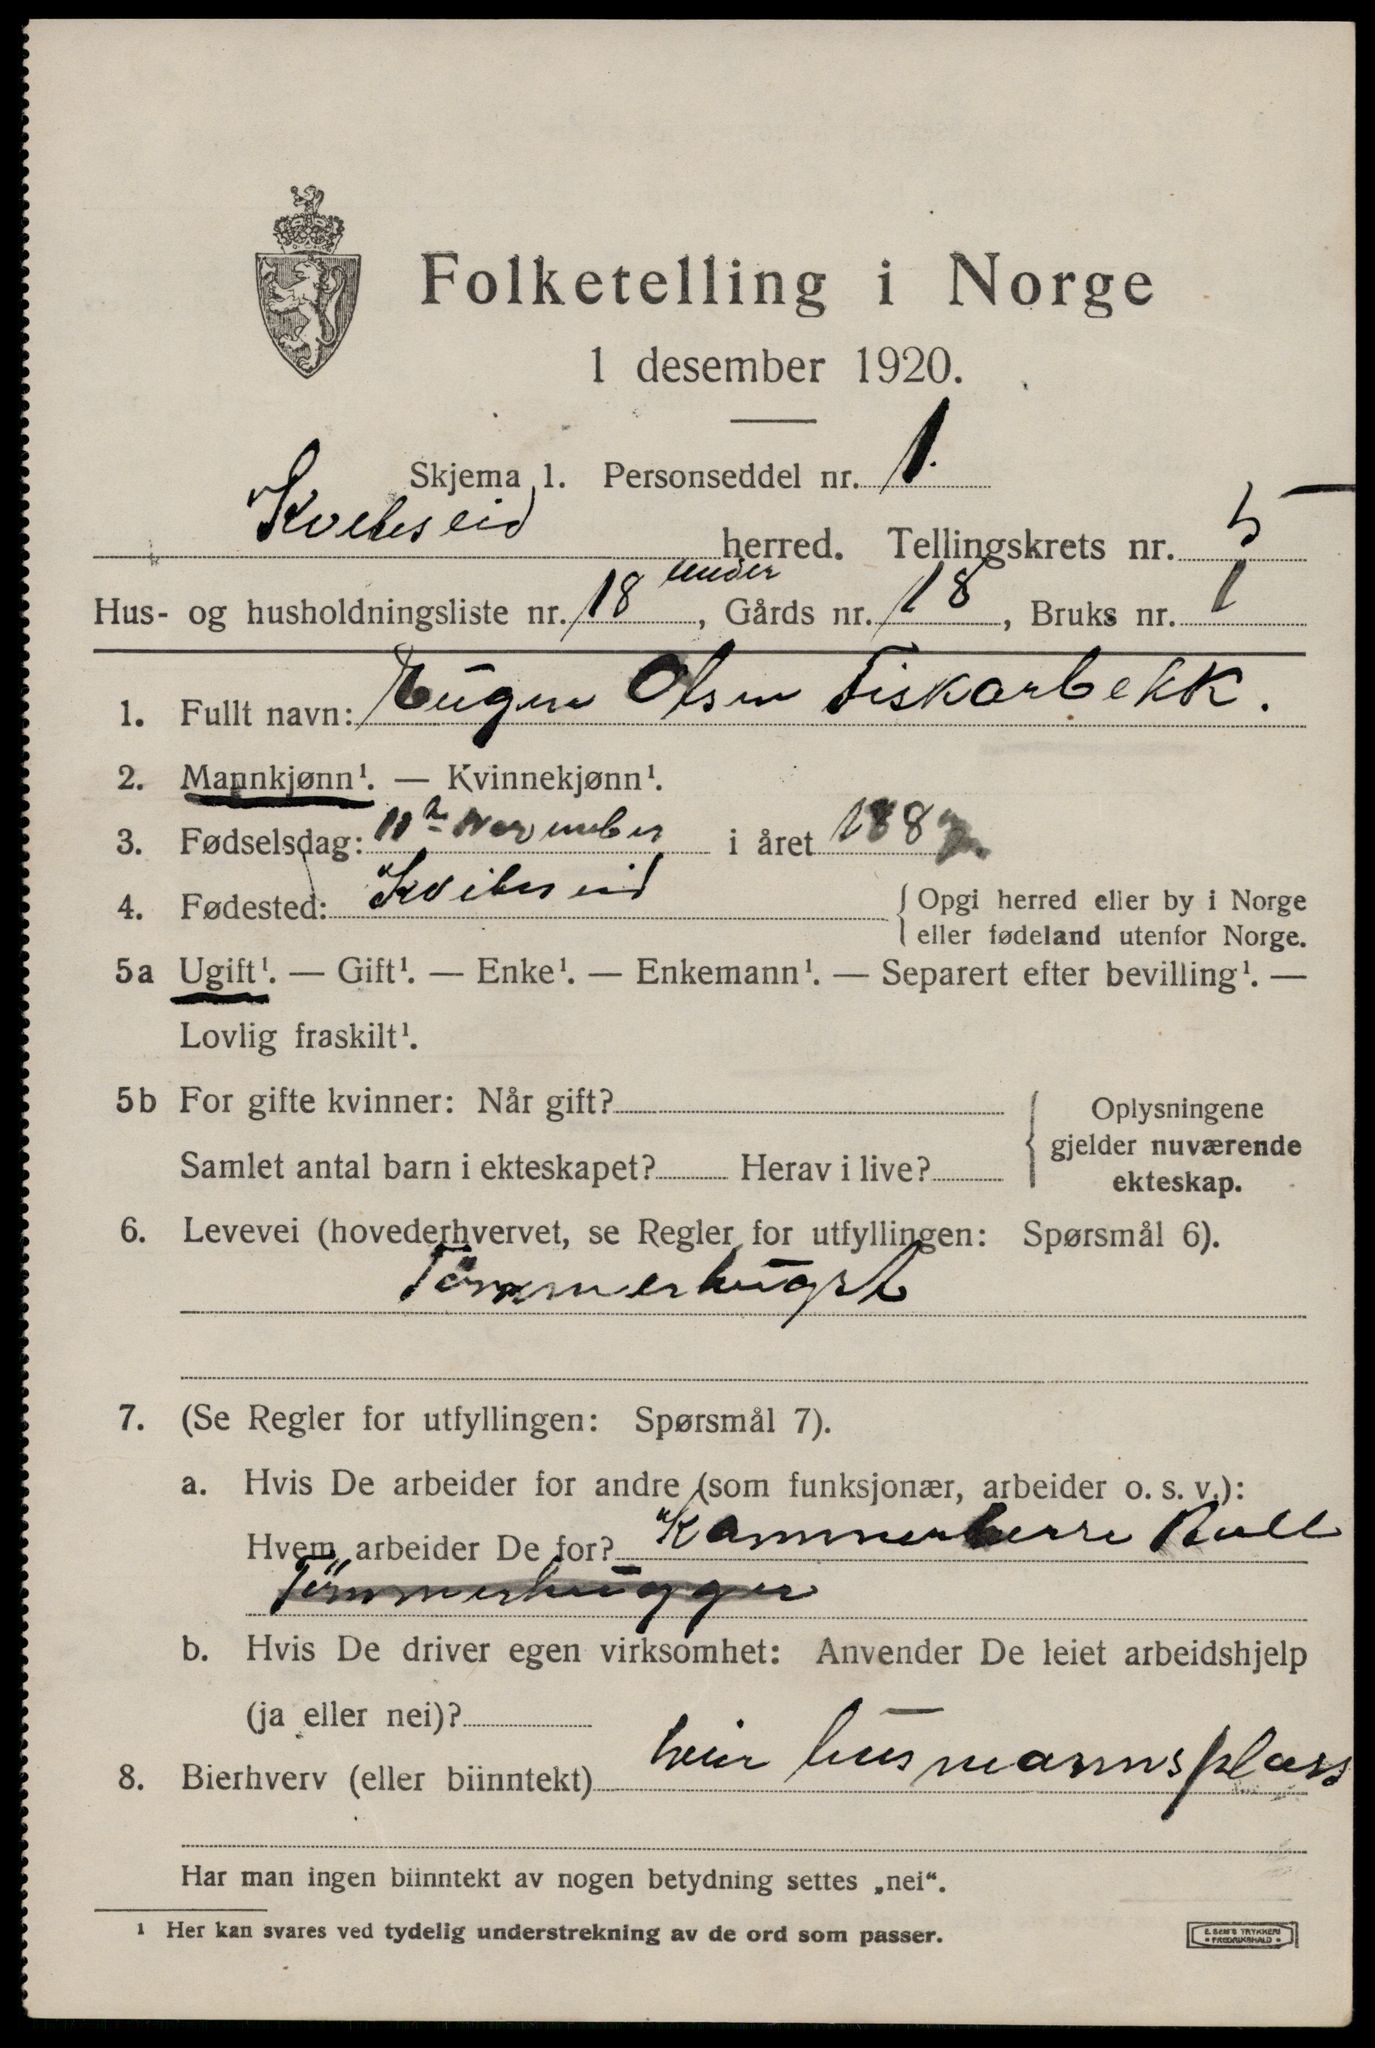 Folketelling i Norge
1 desember 1920.
Skjema 1. Personseddel nr. 1.
Kvitseid herred. Tellingskrets nr. 5
Hus- og husholdningsliste nr. 18 under, Gårds nr. 18, Bruks nr. 1
1. Fullt navn: Eugen Olsen Fiskarbekk.
2. Mannkjønn¹. — Kvinnekjønn¹.
3. Fødselsdag: 11 november i året 1887.
4. Fødested: Kviteseid { Opgi herred eller by i Norge
eller fødeland utenfor Norge.
5a Ugift¹. — Gift¹. — Enke¹. — Enkemann¹. — Separert efter bevilling¹. —
Lovlig fraskilt¹.
5b For gifte kvinner: Når gift?
Samlet antal barn i ekteskapet? Herav i live?
{ Oplysningene
gjelder nuværende
ekteskap.
6. Levevei (hovederhvervet, se Regler for utfyllingen: Spørsmål 6).
Tömmerhugst
7. (Se Regler for utfyllingen: Spørsmål 7).
a. Hvis De arbeider for andre (som funksjonær, arbeider o. s. v.):
Hvem arbeider De for? Kammerherre Roll
Tömmerhugger
b. Hvis De driver egen virksomhet: Anvender De leiet arbeidshjelp
(ja eller nei)?
8. Bierhverv (eller biinntekt) leier husmannsplass
Har man ingen biinntekt av nogen betydning settes „nei“.
¹ Her kan svares ved tydelig understrekning av de ord som passer.
E. SEM'S TRYKKERI
FREDRIKSHALD